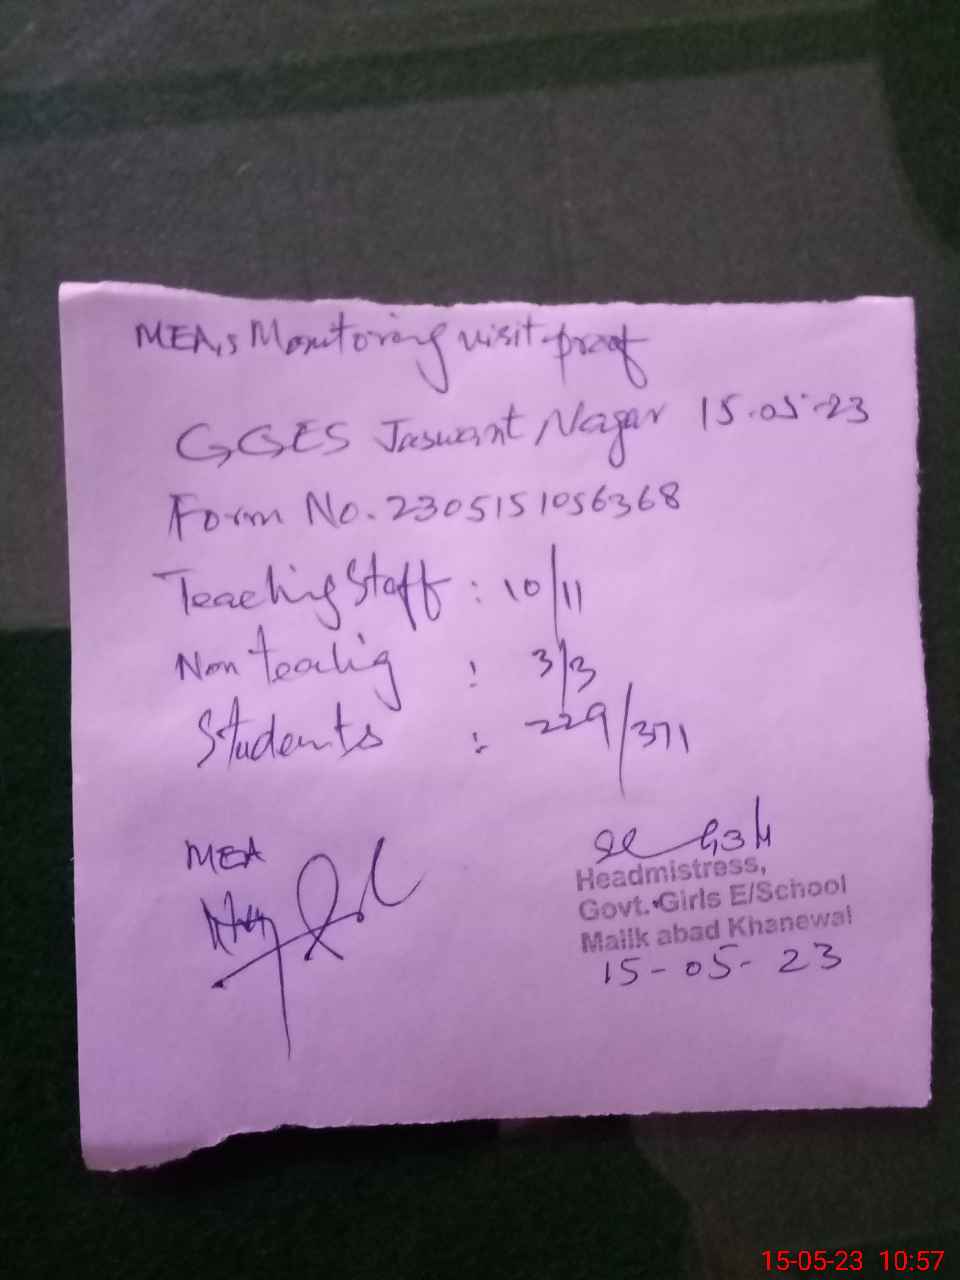 MEA,s Monitoring visit proof
GGES Jaswant Nagar 15.05.23
Form No. 2305151056368
Teaching Staff : 10/11
Non teaching : 3/3
Students : 229/371
MEA
Headmistress,
Govt. Girls E/School
Malik abad Khanewal
15-05-23
15-05-23 10:57